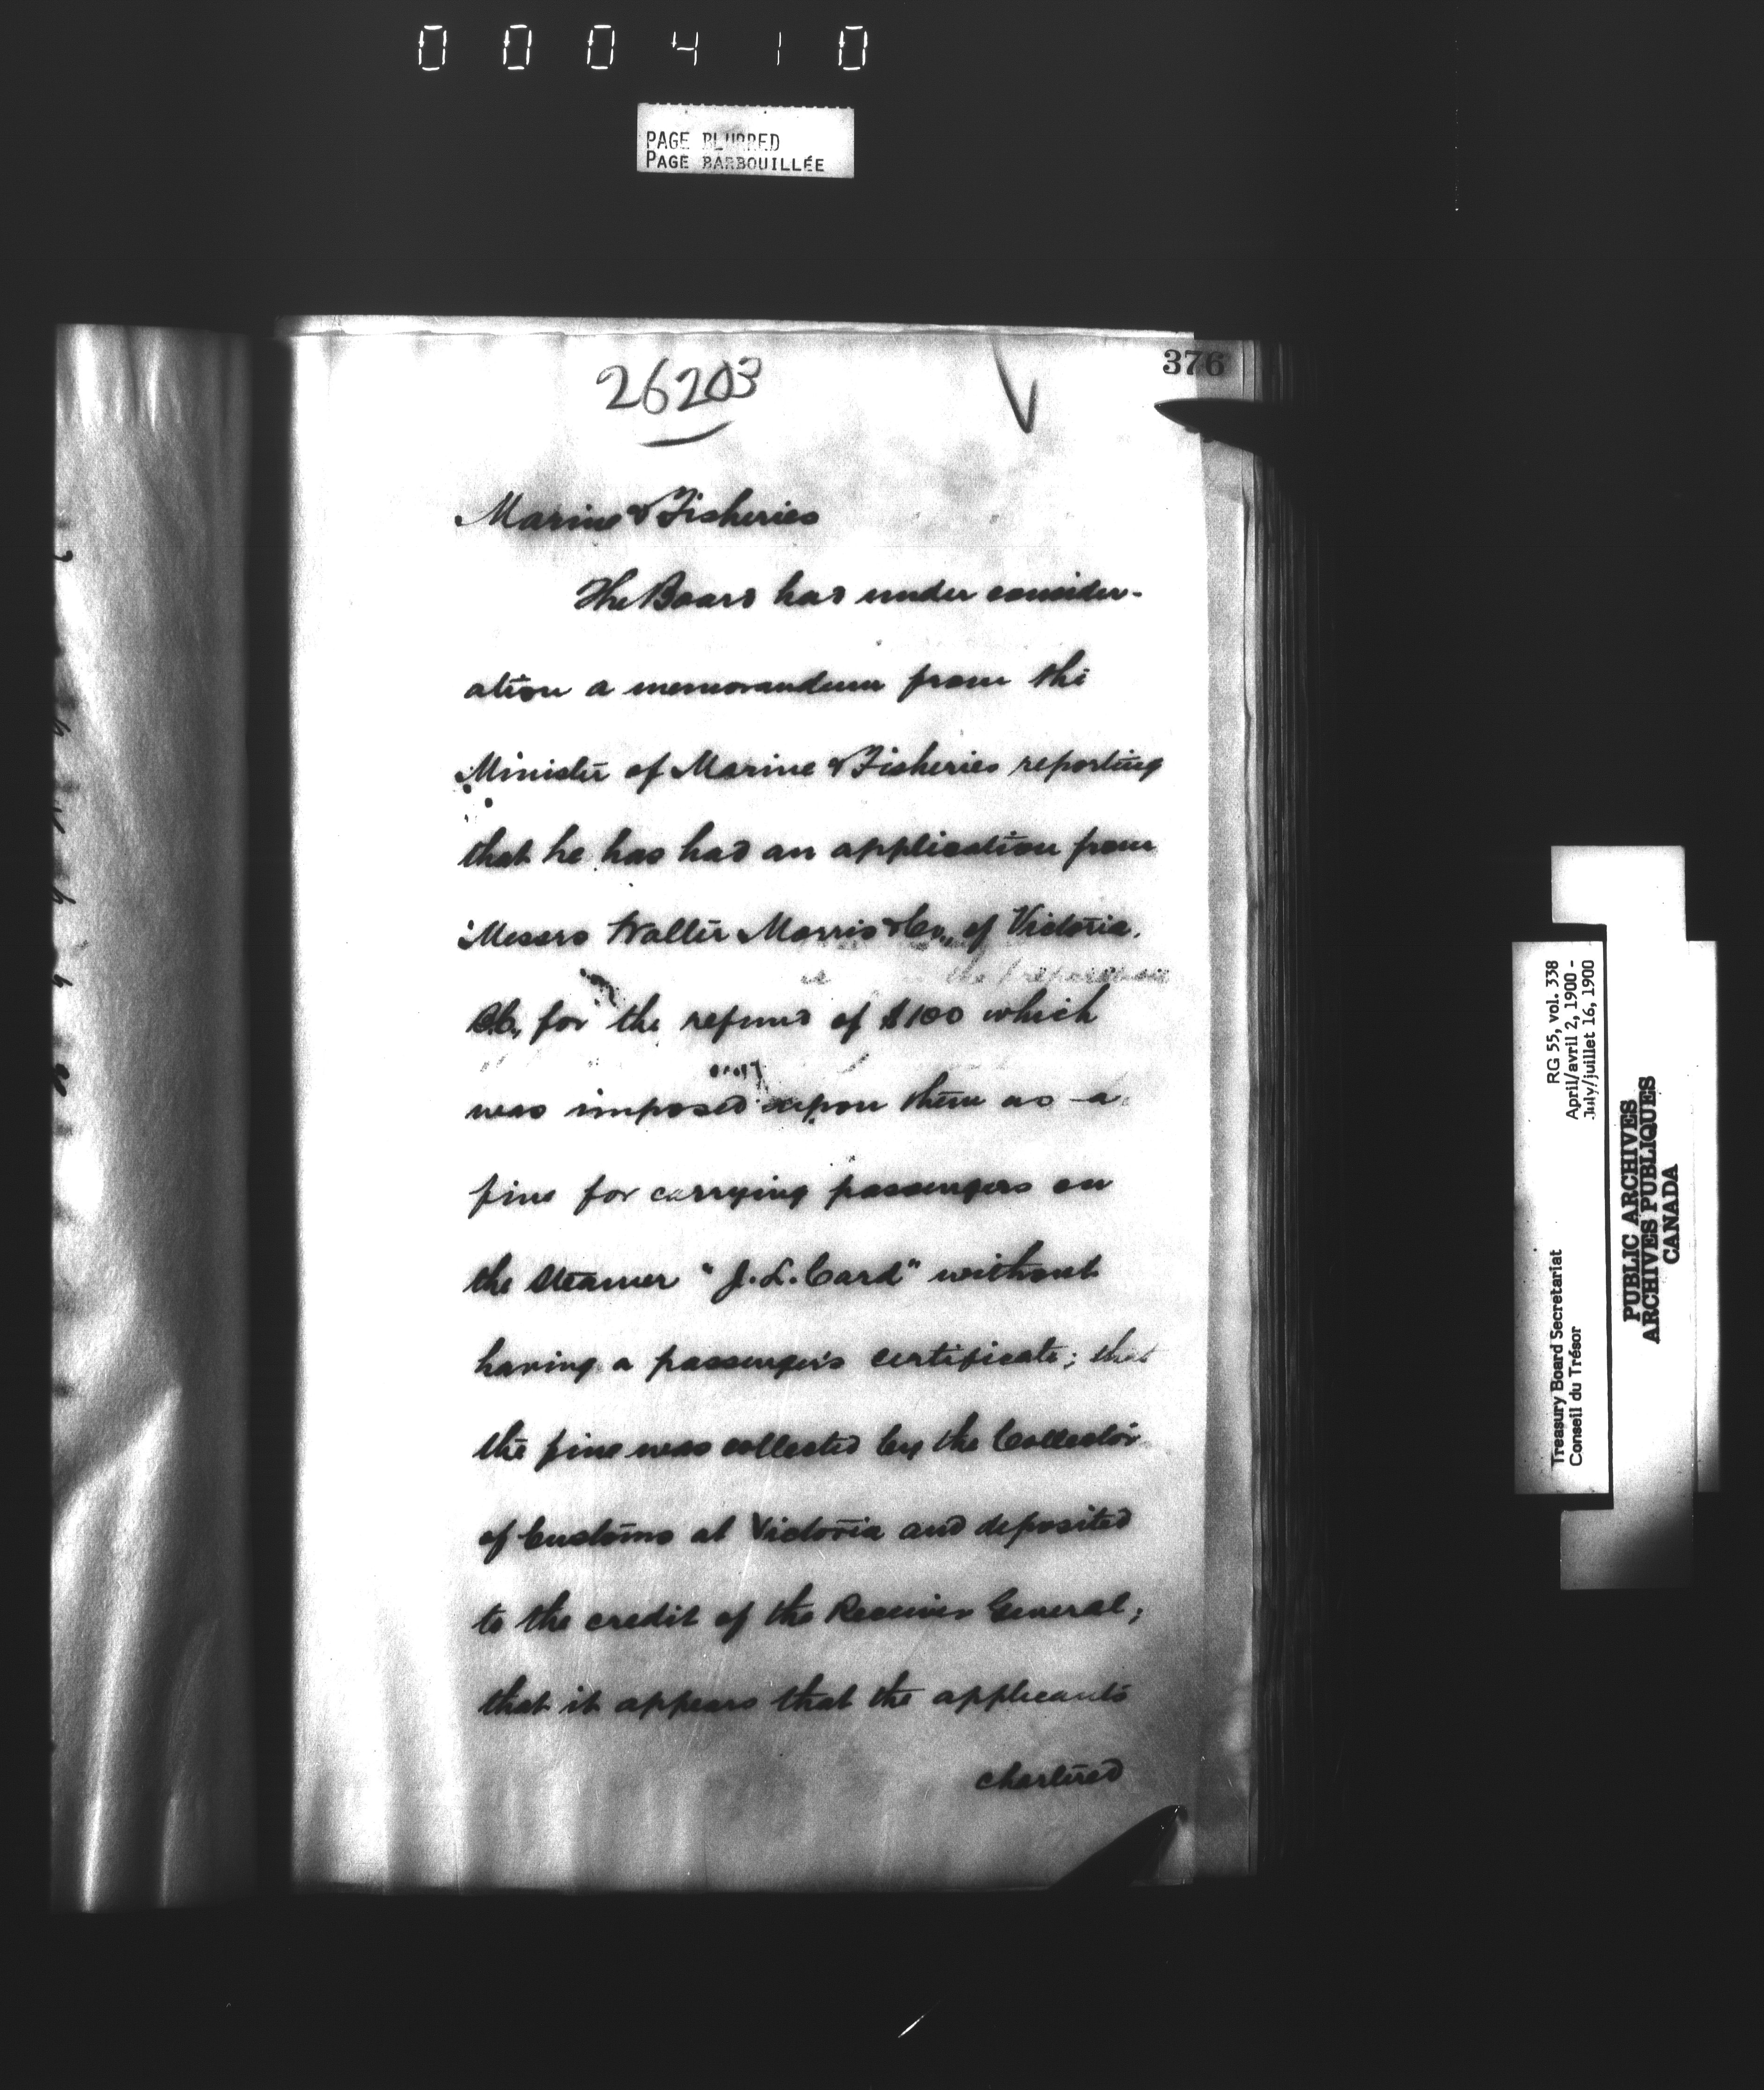 000410
PAGE BLURRED
PAGE BARBOUILLÉE
376
26203
Marine & Fisheries
The Board had under consider-
ation a memorandum from the
Minister of Marine & Fisheries reporting
that he has had an application from
Messrs Walter Morris & Co., of Victoria,
B.C., for the refund of $100 which
was imposed upon them as a
fine for carrying passengers on
the Steamer "J. L. Card" without
having a passenger's certificate; that
the fine was collected by the Collector
of Customs at Victoria and deposited
to the credit of the Receiver General;
that it appears that the applicants
chartered
RG 55, vol. 338
April/avril 2, 1900 -
July/juillet 16, 1900
Treasury Board Secretariat
Conseil du Trésor
PUBLIC ARCHIVES
ARCHIVES PUBLIQUES
CANADA